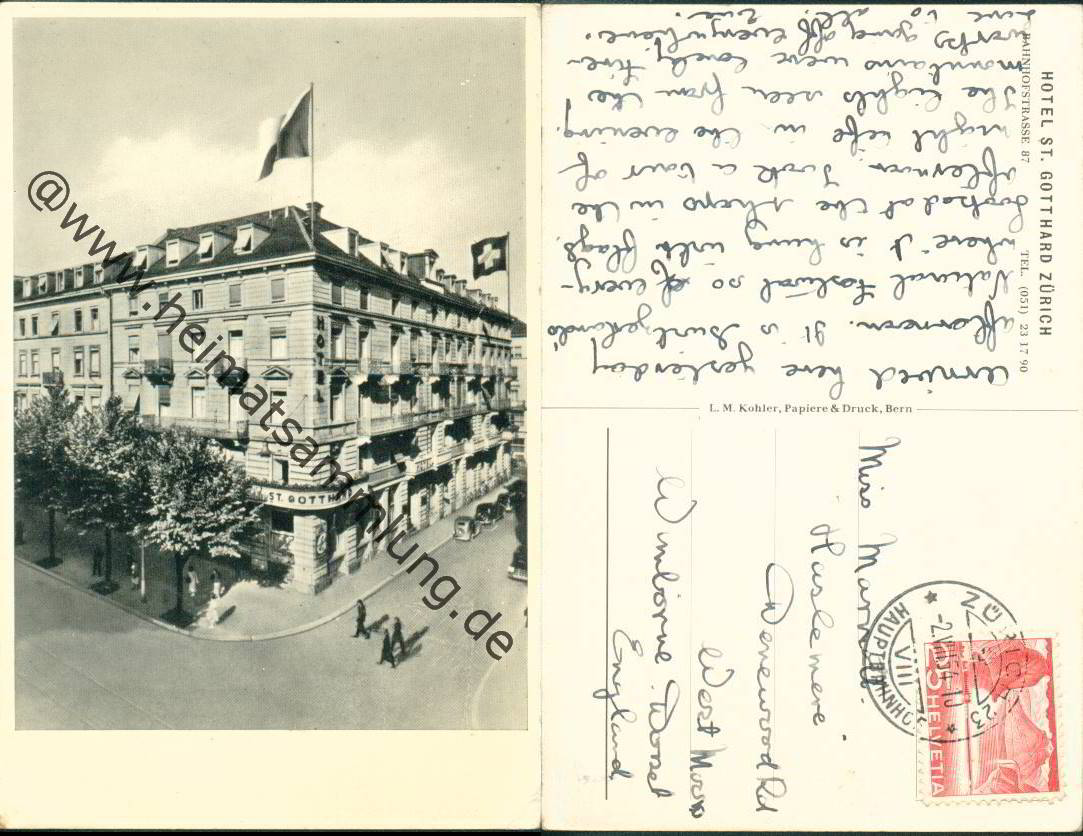 HOTEL
ST. GOTTH
@www.heimatsammlung.de
HOTEL ST. GOTTHARD ZÜRICH
BAHNHOFSTRASSE 87 TEL. (051) 23 17 90
arrived here yesterday
afternoon. It is
National Festival so every-
where it is hung with flags.
Looked at the shops in the
afternoon Took a tour of
night life in the evening.
The lights seen from the
mountains were lovely, fire-
works going off everywhere.
Love to all.
L. M. Kohler, Papiere & Druck, Bern
Miss
Haslemere
Rd
West Moors
Wimborne. Dorset
England
ZÜRICH 23
-2.VIII.54.10
VIII
HAUPTBAHNHOF
HELVETIA